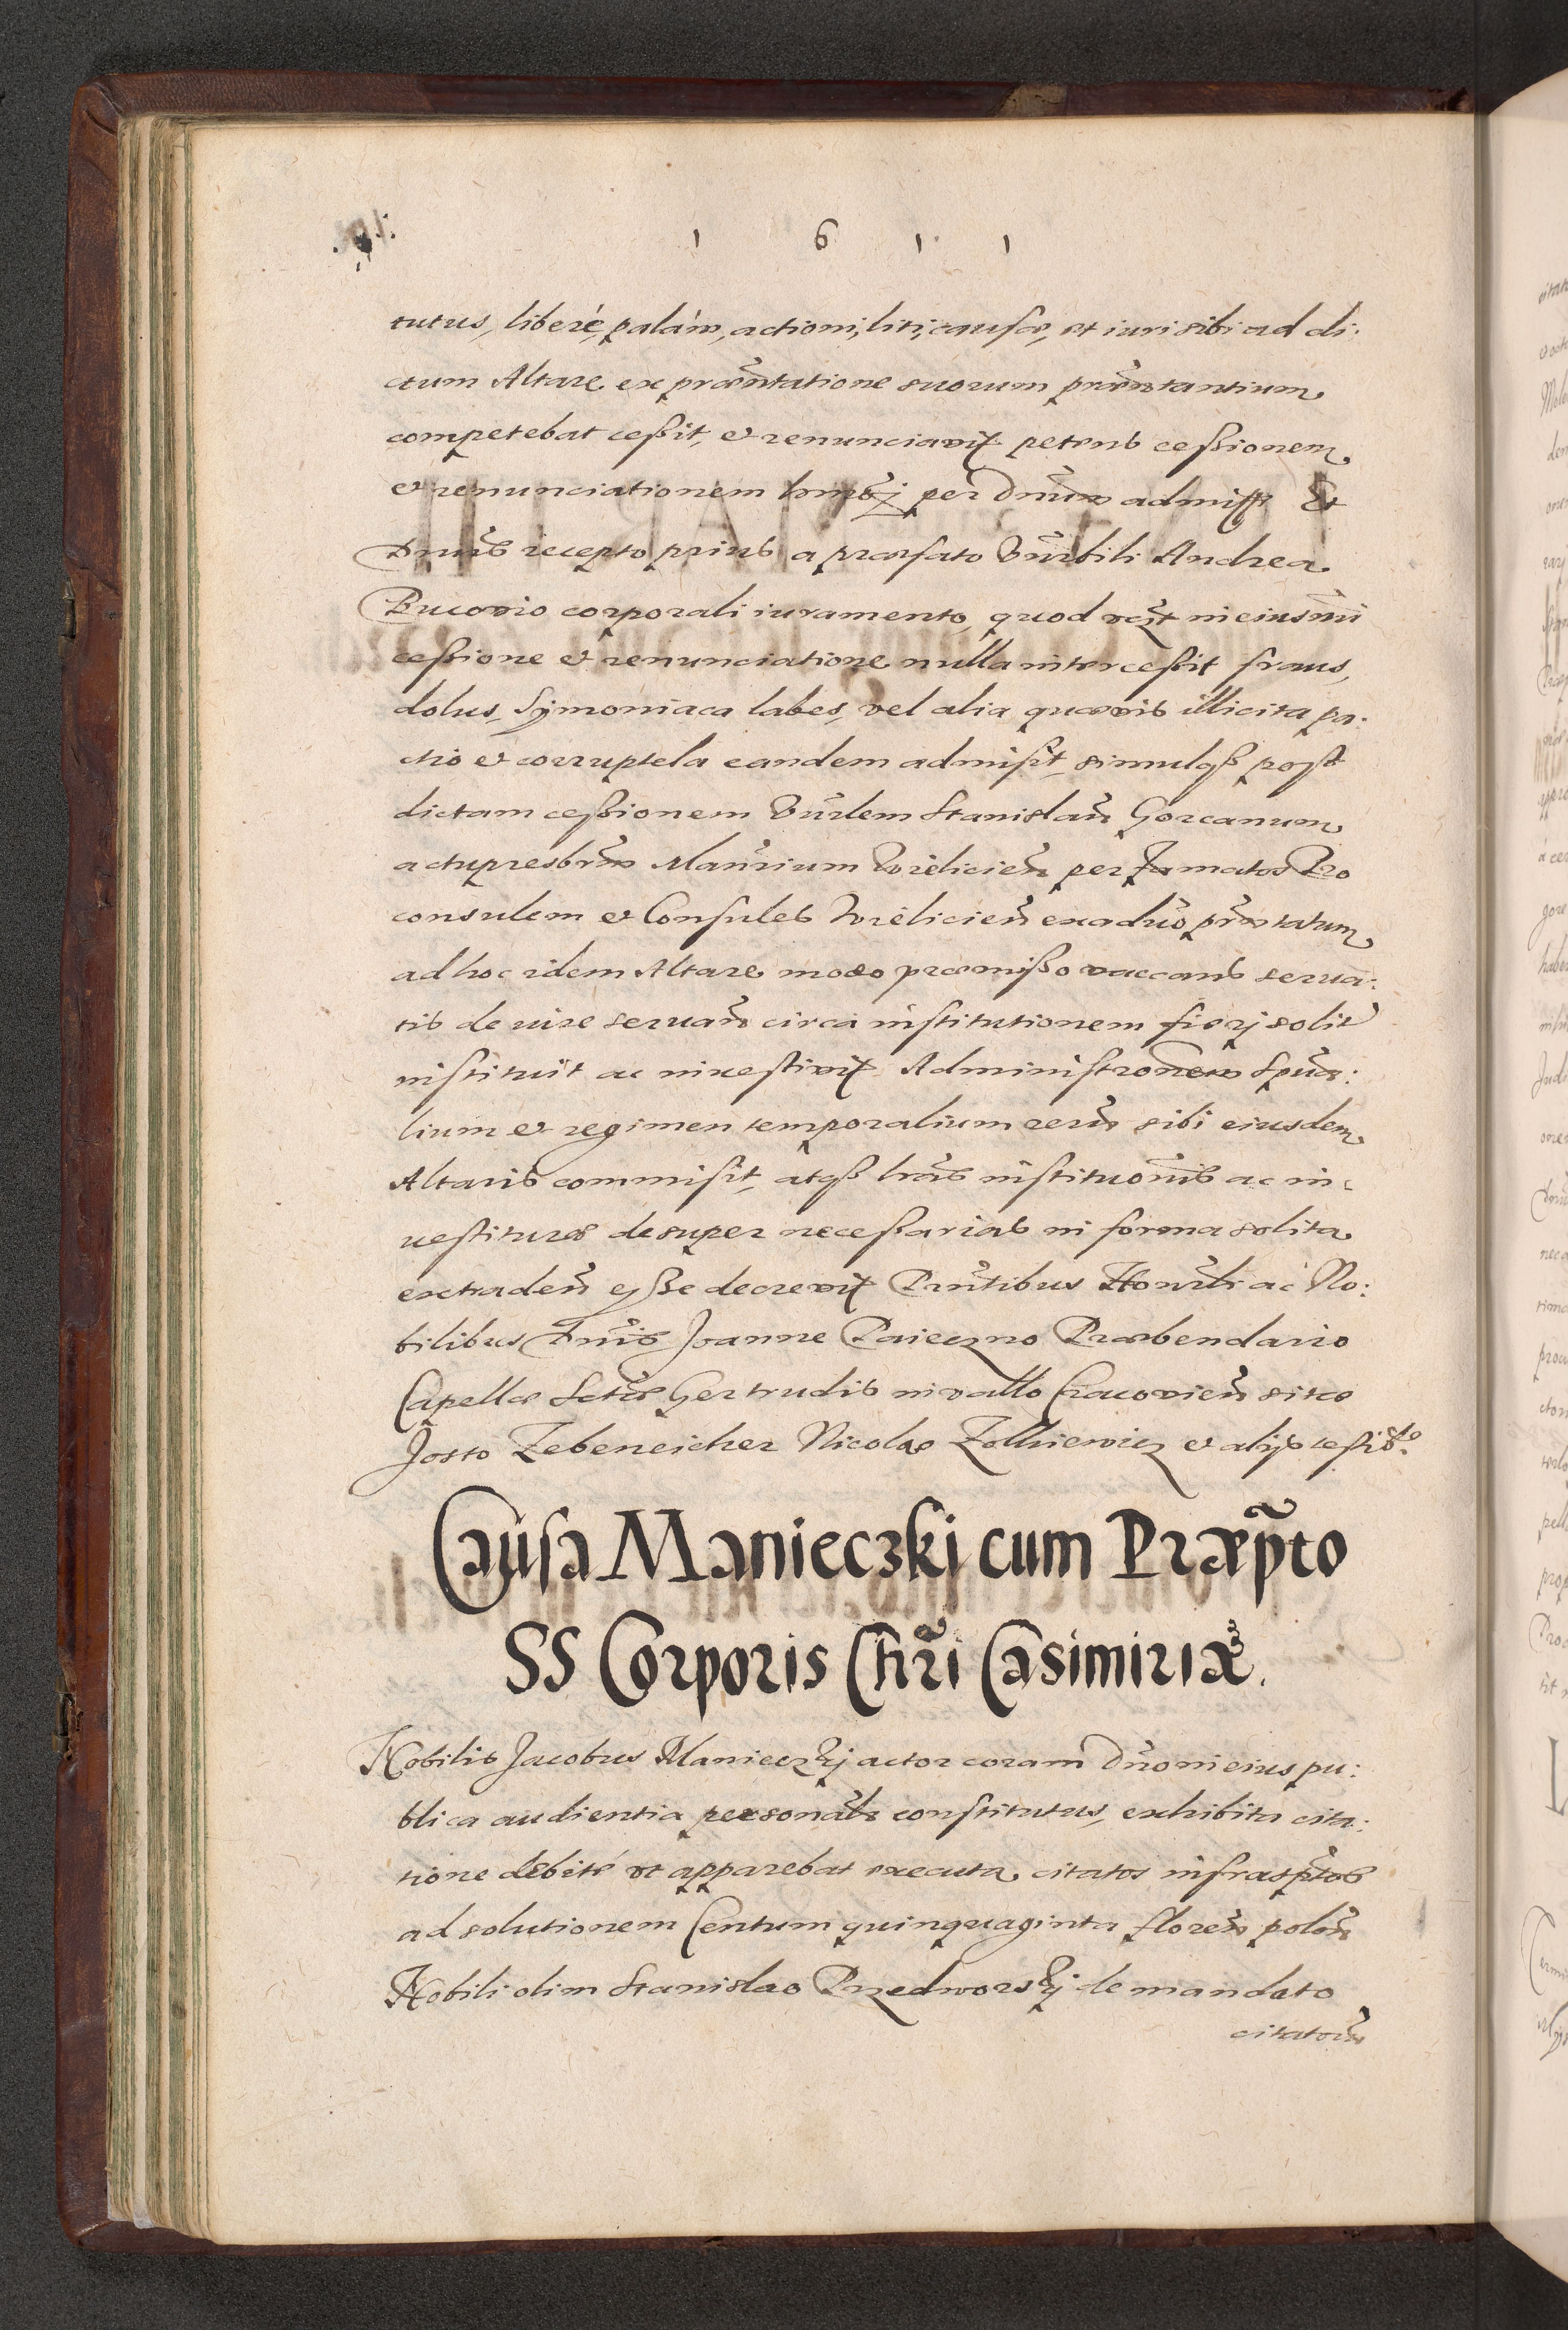 1 6 1 1
tutus, liberé, palám, actioni, liti, causæ, et iuri sibi ad di:
ctum Altare ex præntatione suorum præntantium
competebat ceßit, et renunciavit petens ceßionem
et renunciationem hmõi per Dnũm admitti Et
Dnus recepto prius a præfato Vnrbili Andrea
Bucovio corporali iuramento, quod in eiusmi
ceßione et renunciatione nulla interceßit fraus,
dolus, Symoniaca labes, vel alia quævis illicita pa:
ctio et corruptela eandem admisit, simulqß post
dictam ceßionem Vnrlem Stanislaũ Gorcanum
actupresbrũm Mansrium Wielicieñ per Famatos Pro
consulem et Consules Wielicieñ ex aduo præntatum
ad hoc idem Altare modo præmißo vaccans serua:
tis de iure seruañ circa institutionem fierj solit
instituit ac inuestivit Administronem Spũa:
lium et regimen temporalium rerũ sibi eiusdem
Altaris commisit, atqß lrãs instituõnis ac in:
uestituræ desuper neceßarias in forma solita
extradeñ eße decrevit Præntibus Honrli ac No:
bilibus Dnis Joanne Paieczno Præbendario
Capellæ Sctæ Gertrudis in vallo Cracovieñ sitæ
Josto Zebeneicher Nicolao Zolkiewicz et alijs testib.
Causa Manieczkj cum Præpto
SS Corporis Chri Casimiriæ.
Nobilis Jacobus Manieczkj actor coram Dño in eius pu:
blica audientia personałr constitutus, exhibita cita:
tione debité vt apparebat executa citatos infrasptos
ad solutionem Centum quinquaginta floreñ poloñ
Nobili olim Stanislao Przedworskj de mandato
citatorũ